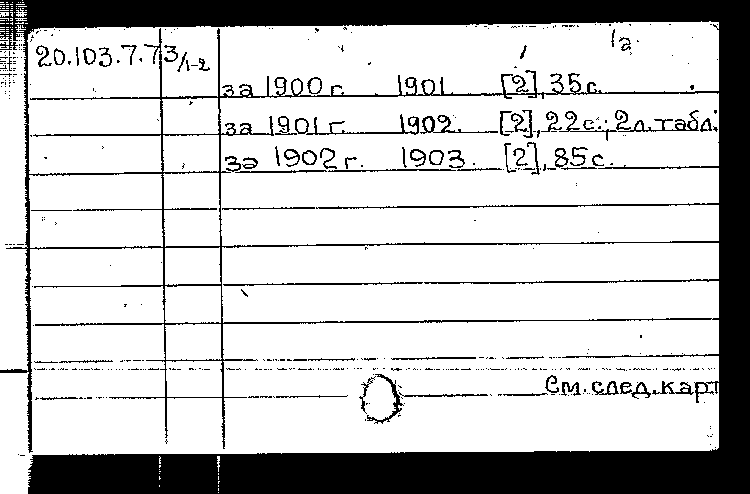 1а
20.103.7.73/1-2
за 1900 г. 1901 [2], 35 с.
за 1901 г. 1902. [2], 22 с.; 2 л. табл.
за 1902 г. 1903. [2], 85 с.
См. след. карт